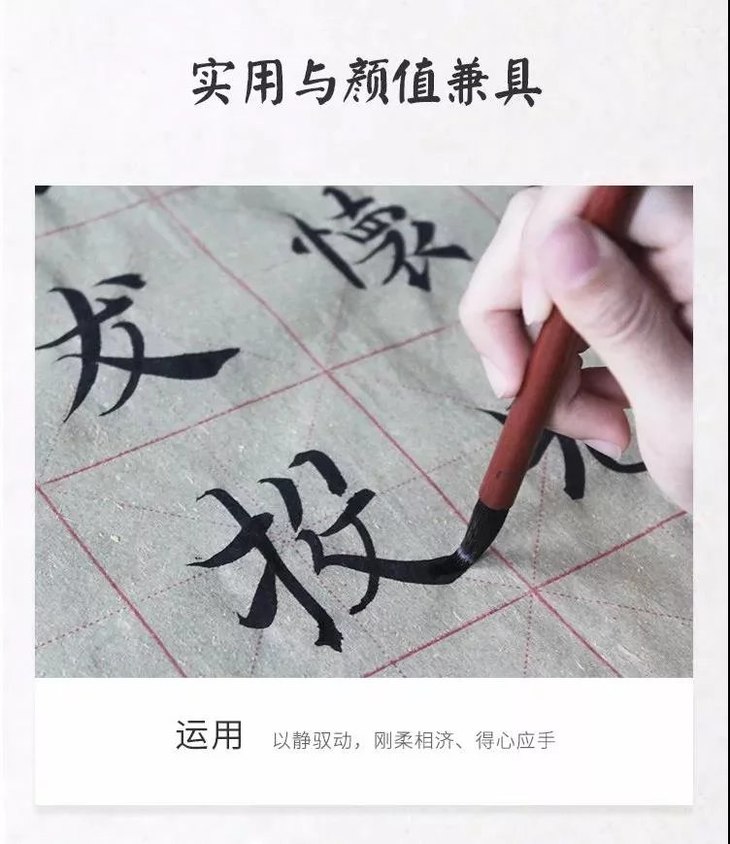 实用与颜值兼具
懷
投
运用 以静驭动，刚柔相济、得心应手